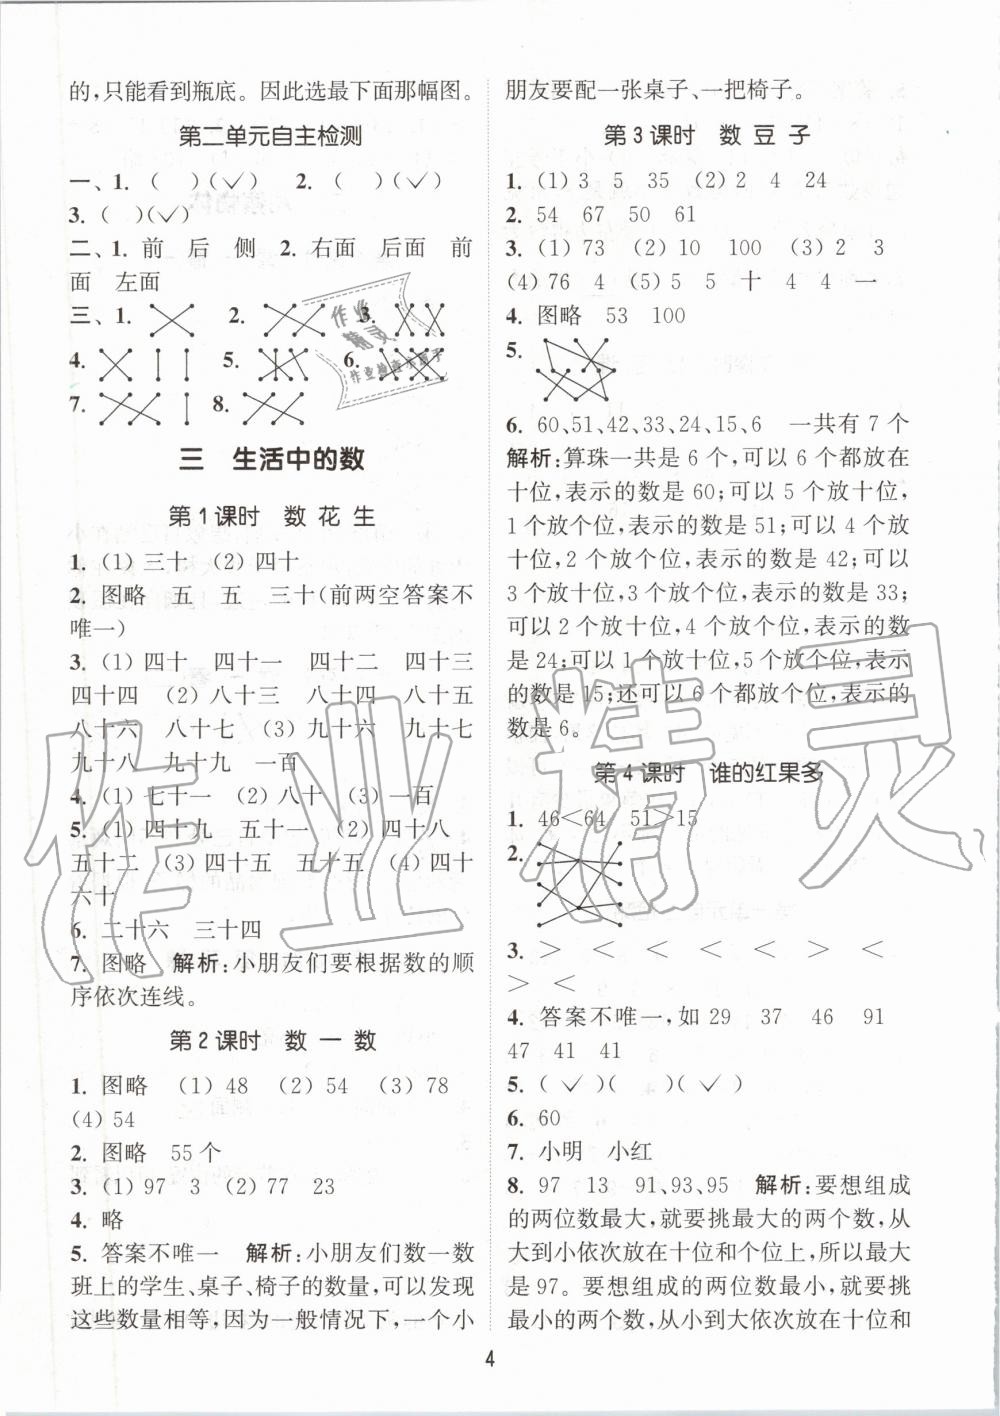 的,只能看到瓶底。因此选最下面那幅图。
第二单元自主检测
一、1. (　)(✓)　2. (✓)(　)
3. (　)(✓)
二、1. 前　后　侧　2. 右面　后面　前
面　左面
三、1.　2.　3.
4.　5.　6.
7.　8.
三　生活中的数
第1课时　数花生
1. (1)三十　(2)四十
2. 图略　五　五　三十(前两空答案不
唯一)
3. (1)四十　四十一　四十二　四十三
四十四　(2)八十三　八十四　八十五
八十六　八十七　(3)九十六　九十七
九十八　九十九　一百
4. (1)七十一　(2)八十　(3)一百
5. (1)四十九　五十一　(2)四十八
五十二　(3)四十五　五十五　(4)四十
六十
6. 二十六　三十四
7. 图略　解析:小朋友们要根据数的顺
序依次连线。
第2课时　数一数
1. 图略　(1)48　(2)54　(3)78
(4)54
2. 图略　55个
3. (1)97　3　(2)77　23
4. 略
5. 答案不唯一　解析:小朋友们数一数
班上的学生、桌子、椅子的数量,可以发现
这些数量相等,因为一般情况下,一个小
朋友要配一张桌子、一把椅子。
第3课时　数豆子
1. (1)3　5　35　(2)2　4　24
2. 54　67　50　61
3. (1)73　(2)10　100　(3)2　3
(4)76　4　(5)5　5　十　4　4　一
4. 图略　53　100
5.
6. 60、51、42、33、24、15、6　一共有7个
解析:算珠一共是6个,可以6个都放在
十位,表示的数是60;可以5个放十位,
1个放个位,表示的数是51;可以4个放
十位,2个放个位,表示的数是42;可以
3个放十位,3个放个位,表示的数是33;
可以2个放十位,4个放个位,表示的数
是24;可以1个放十位,5个放个位,表示
的数是15;还可以6个都放个位,表示的
数是6。
第4课时　谁的红果多
1. 46<64　51>15
2.
3. >　<　<　>　<　<
>　<
4. 答案不唯一,如29　37　46　91
47　41　41
5. (✓)(　)　(　)(✓)
6. 60
7. 小明　小红
8. 97　13　91、93、95　解析:要想组成
的两位数最大,就要挑最大的两个数,从
大到小依次放在十位和个位上,所以最大
是97。要想组成的两位数最小,就要挑
最小的两个数,从小到大依次放在十位和
4
作业精灵
作业
精灵